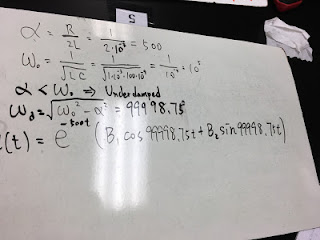 5
α = R/2L = 1/2·10⁻³ = 500
ω₀ = 1/√LC = 1/√1·10⁻³·100·10⁻⁹ = 1/10⁻⁵ = 10⁵
α < ω₀ ⇒ Underdamped
ω_d = √ω₀² - α² = 99998.75
(t) = e^-500t (B₁ cos 99998.75t + B₂ sin 99998.75t)